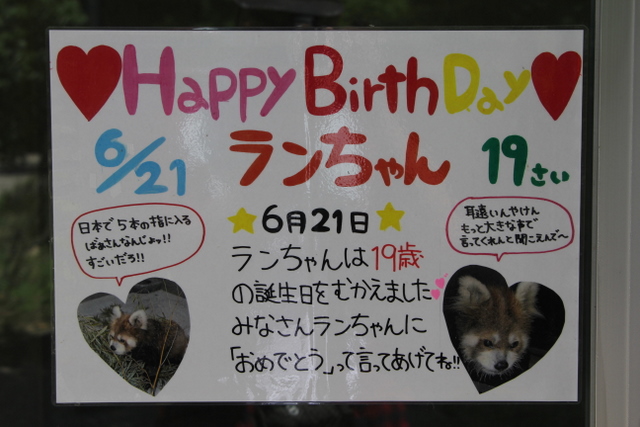 Happy Birth Day
6/21 ランちゃん 19さい
★6月21日★
ランちゃんは19歳
の誕生日をむかえました
みなさんランちゃんに
「おめでとう」って言ってあげてね!!
日本で5本の指に入る
ばぁさんなんじょッ!!
すごいだろ!!
耳遠いんやけん
もっと大きな声で
言ってくれんと聞こえんで〜